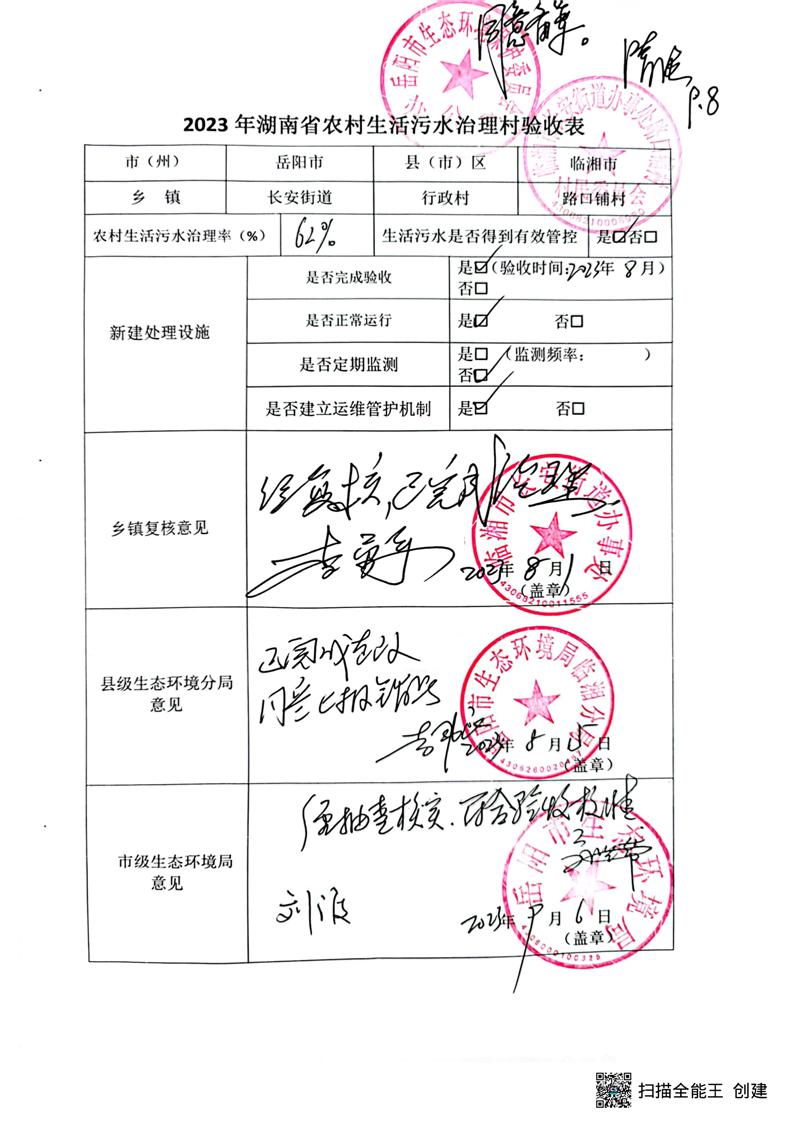 同意备案。
9.8
2023年湖南省农村生活污水治理村验收表
市（州） 岳阳市 县（市）区 临湘市
乡 镇 长安街道 行政村 路口铺村
农村生活污水治理率（%） 62% 生活污水是否得到有效管控 是☑否□
新建处理设施
是否完成验收 是☑（验收时间:2023年 8月）
否□
是否正常运行 是☑ 否□
是否定期监测 是□（监测频率： ）
否☑
是否建立运维管护机制 是☑ 否□
乡镇复核意见
经复核，已完成治理
2023年8月1日
（盖章）
临湘市长安街道办事处
43068210011555
县级生态环境分局
意见
已完成整改
同意上报销号
2023年8月15日
（盖章）
岳阳市生态环境局临湘分局
市级生态环境局
意见
经抽查核实，符合验收标准
2023年9月6日
（盖章）
岳阳市生态环境局
扫描全能王 创建